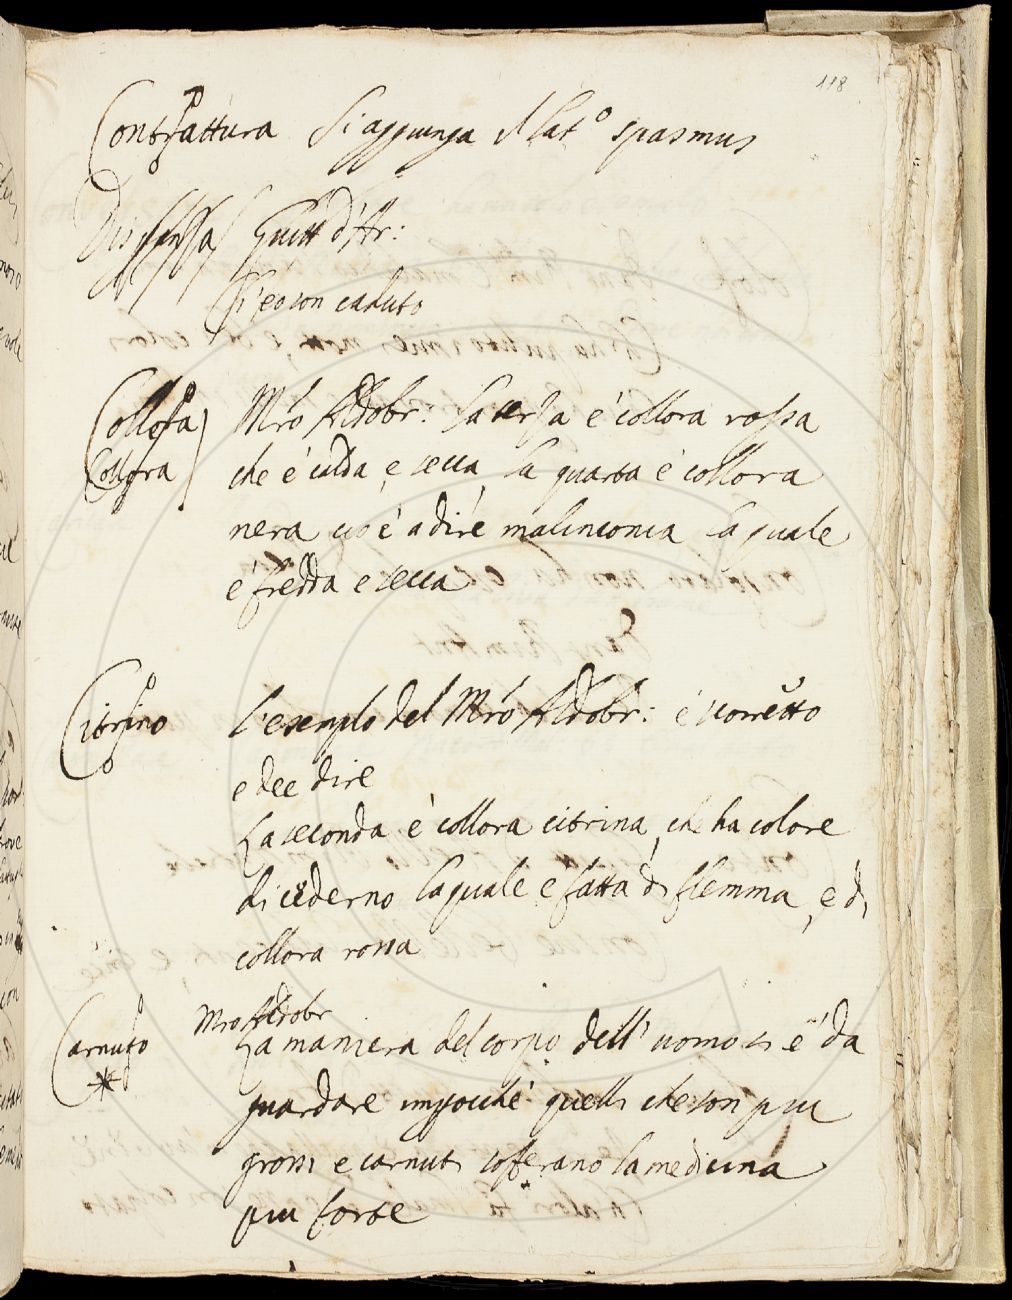 118
Contrattura Si aggiunga il lat.o spasmus
Guitt d'Ar:
Si eo son caduto
Collora Mro Aldobr: la terza è collora rossa
Collera che è calda, e secca, la quarta è collora
nera cio è a dire malinconia la quale
è fredda e secca
Citrino L'esemplo del Mro Aldobr: è scorretto
e dee dire
La seconda è collora citrina, che ha colore
di cederno la quale e fatta di flemma, e di
collora rossa
Mro Aldobr
Carnuto La maniera del corpo dell' uomo si è da
guardare impocchè quelli che son piu
grossi e carnuti sofferano la medicina
piu forte